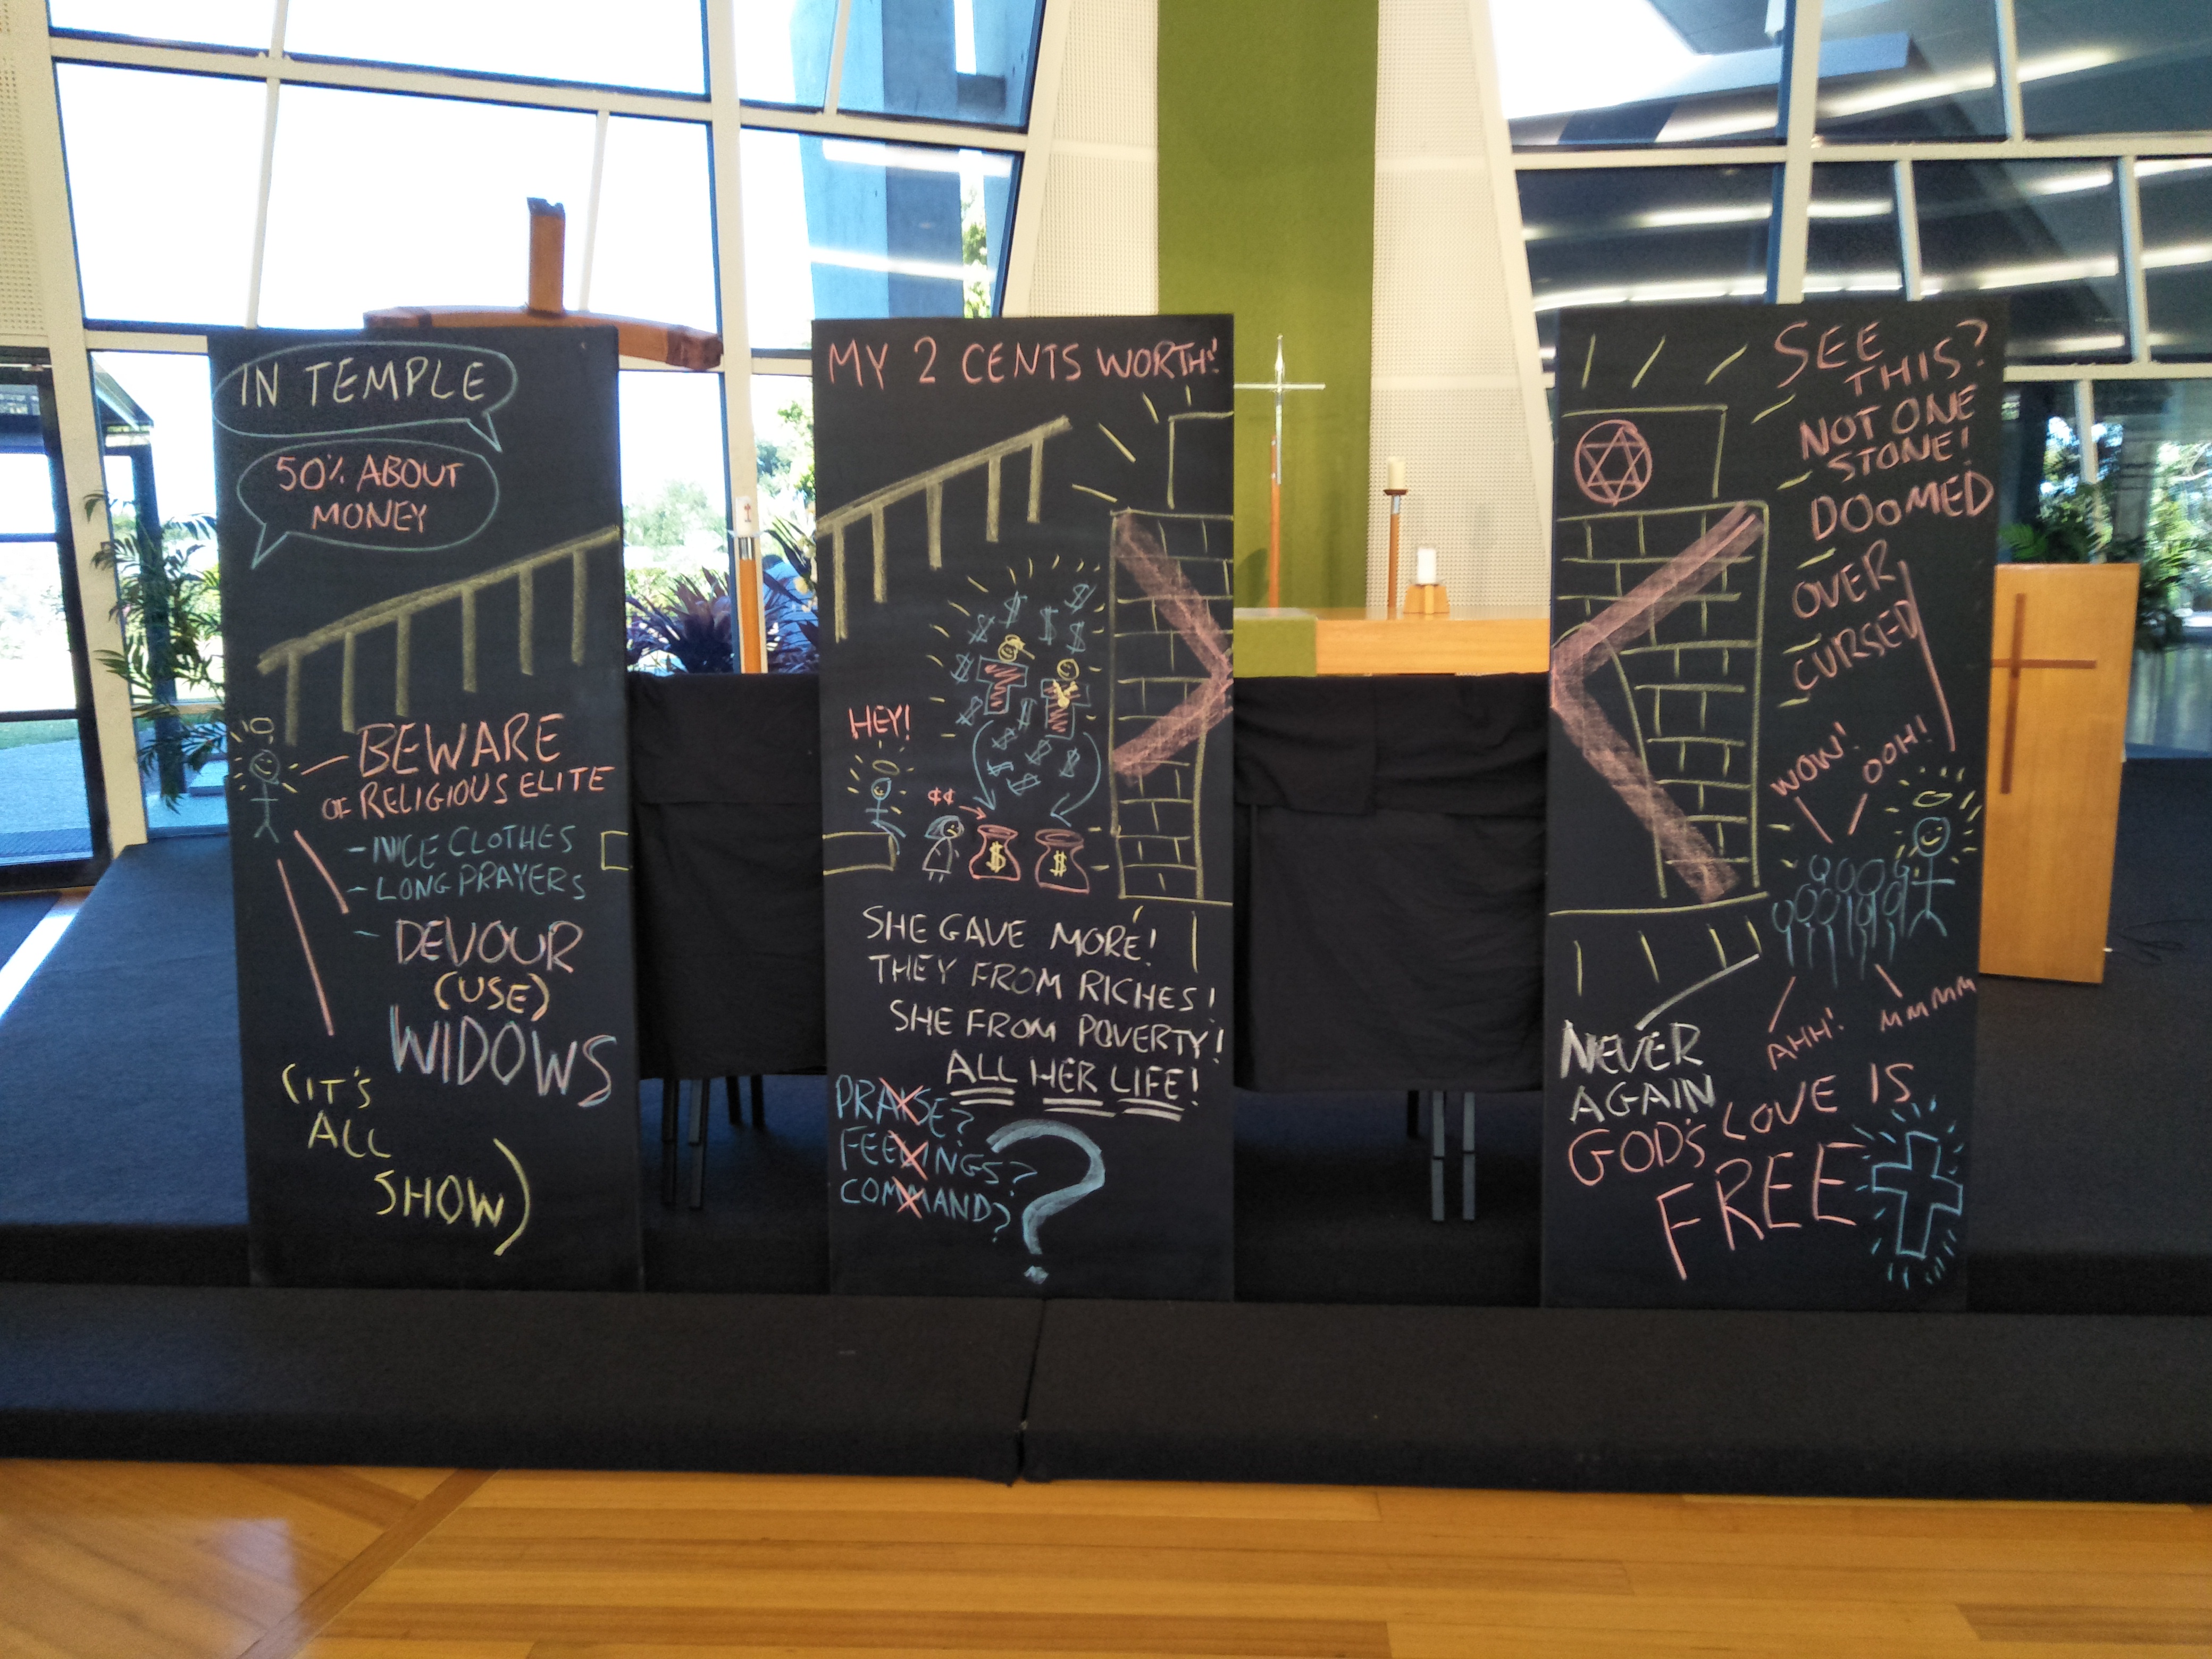 IN TEMPLE
50% ABOUT
MONEY
BEWARE
OF RELIGIOUS ELITE
- NICE CLOTHES
- LONG PRAYERS
- DEVOUR
(USE)
WIDOWS
(IT'S
ALL
SHOW)
MY 2 CENTS WORTH!
HEY!
¢¢
$ $ $ $ $ $ $ $ $ $ $ $
$ $
SHE GAVE MORE!
THEY FROM RICHES!
SHE FROM POVERTY!
ALL HER LIFE!
PRAISE?
FEELINGS?
COMMAND?
?
SEE
THIS?
NOT ONE
STONE!
DOOMED
OVER
CURSED
WOW!
OOH!
AHH!
MMMM
NEVER
AGAIN
GOD'S LOVE IS
FREE